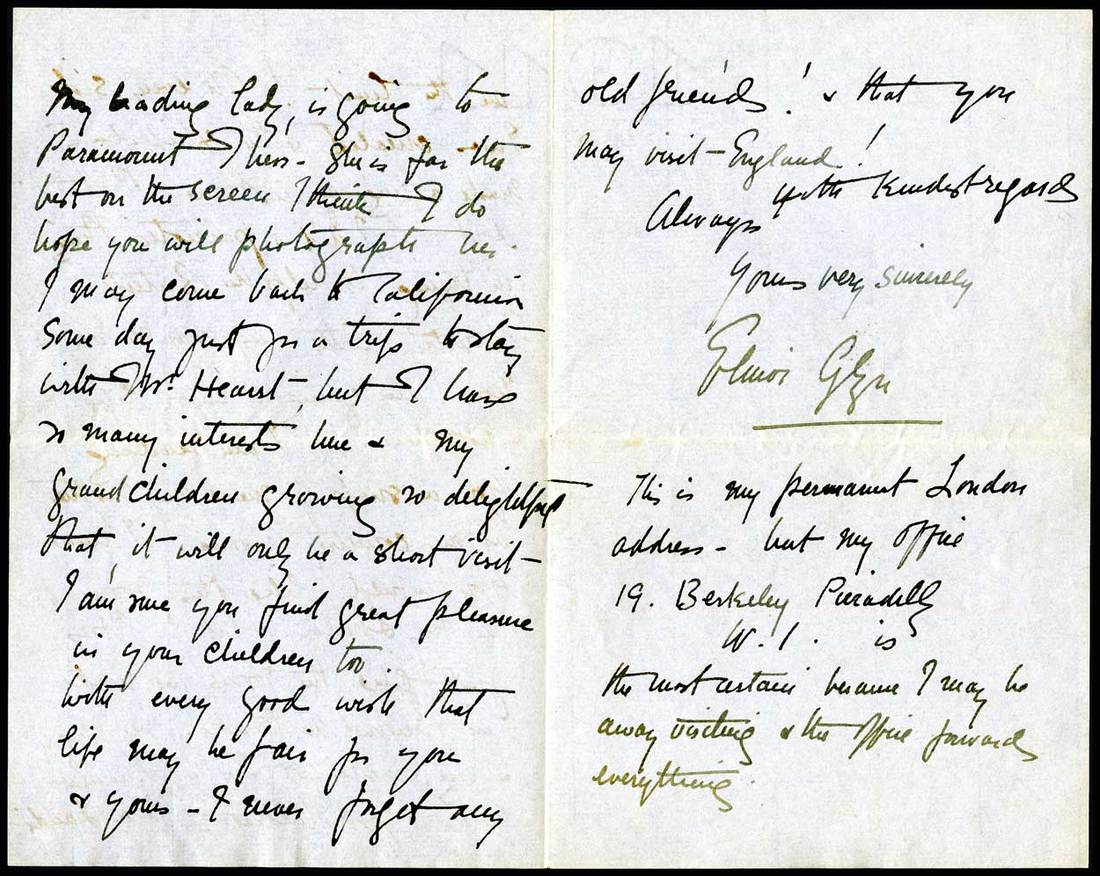 My leading lady, is going to
Paramount I hear - She is far the
best on the screen I think I do
hope you will photograph her.
I may come back to California
some day just for a trip to stay
with Mr. Hearst, but I have
so many interests here & my
grandchildren growing so delightful
that, it will only be a short visit -
I am sure you find great pleasure
in your children too.
With every good wish that
life may be fair for you
& yours - I never forget my
old friends! & that you
may visit - England!
Always with kindest regards
Yours very sincerely
Elinor Glyn
This is my permanent London
address - but my office
19. Berkeley Piccadilly
W.1. is
the most certain because I may be
away visiting & the office forwards
everything.